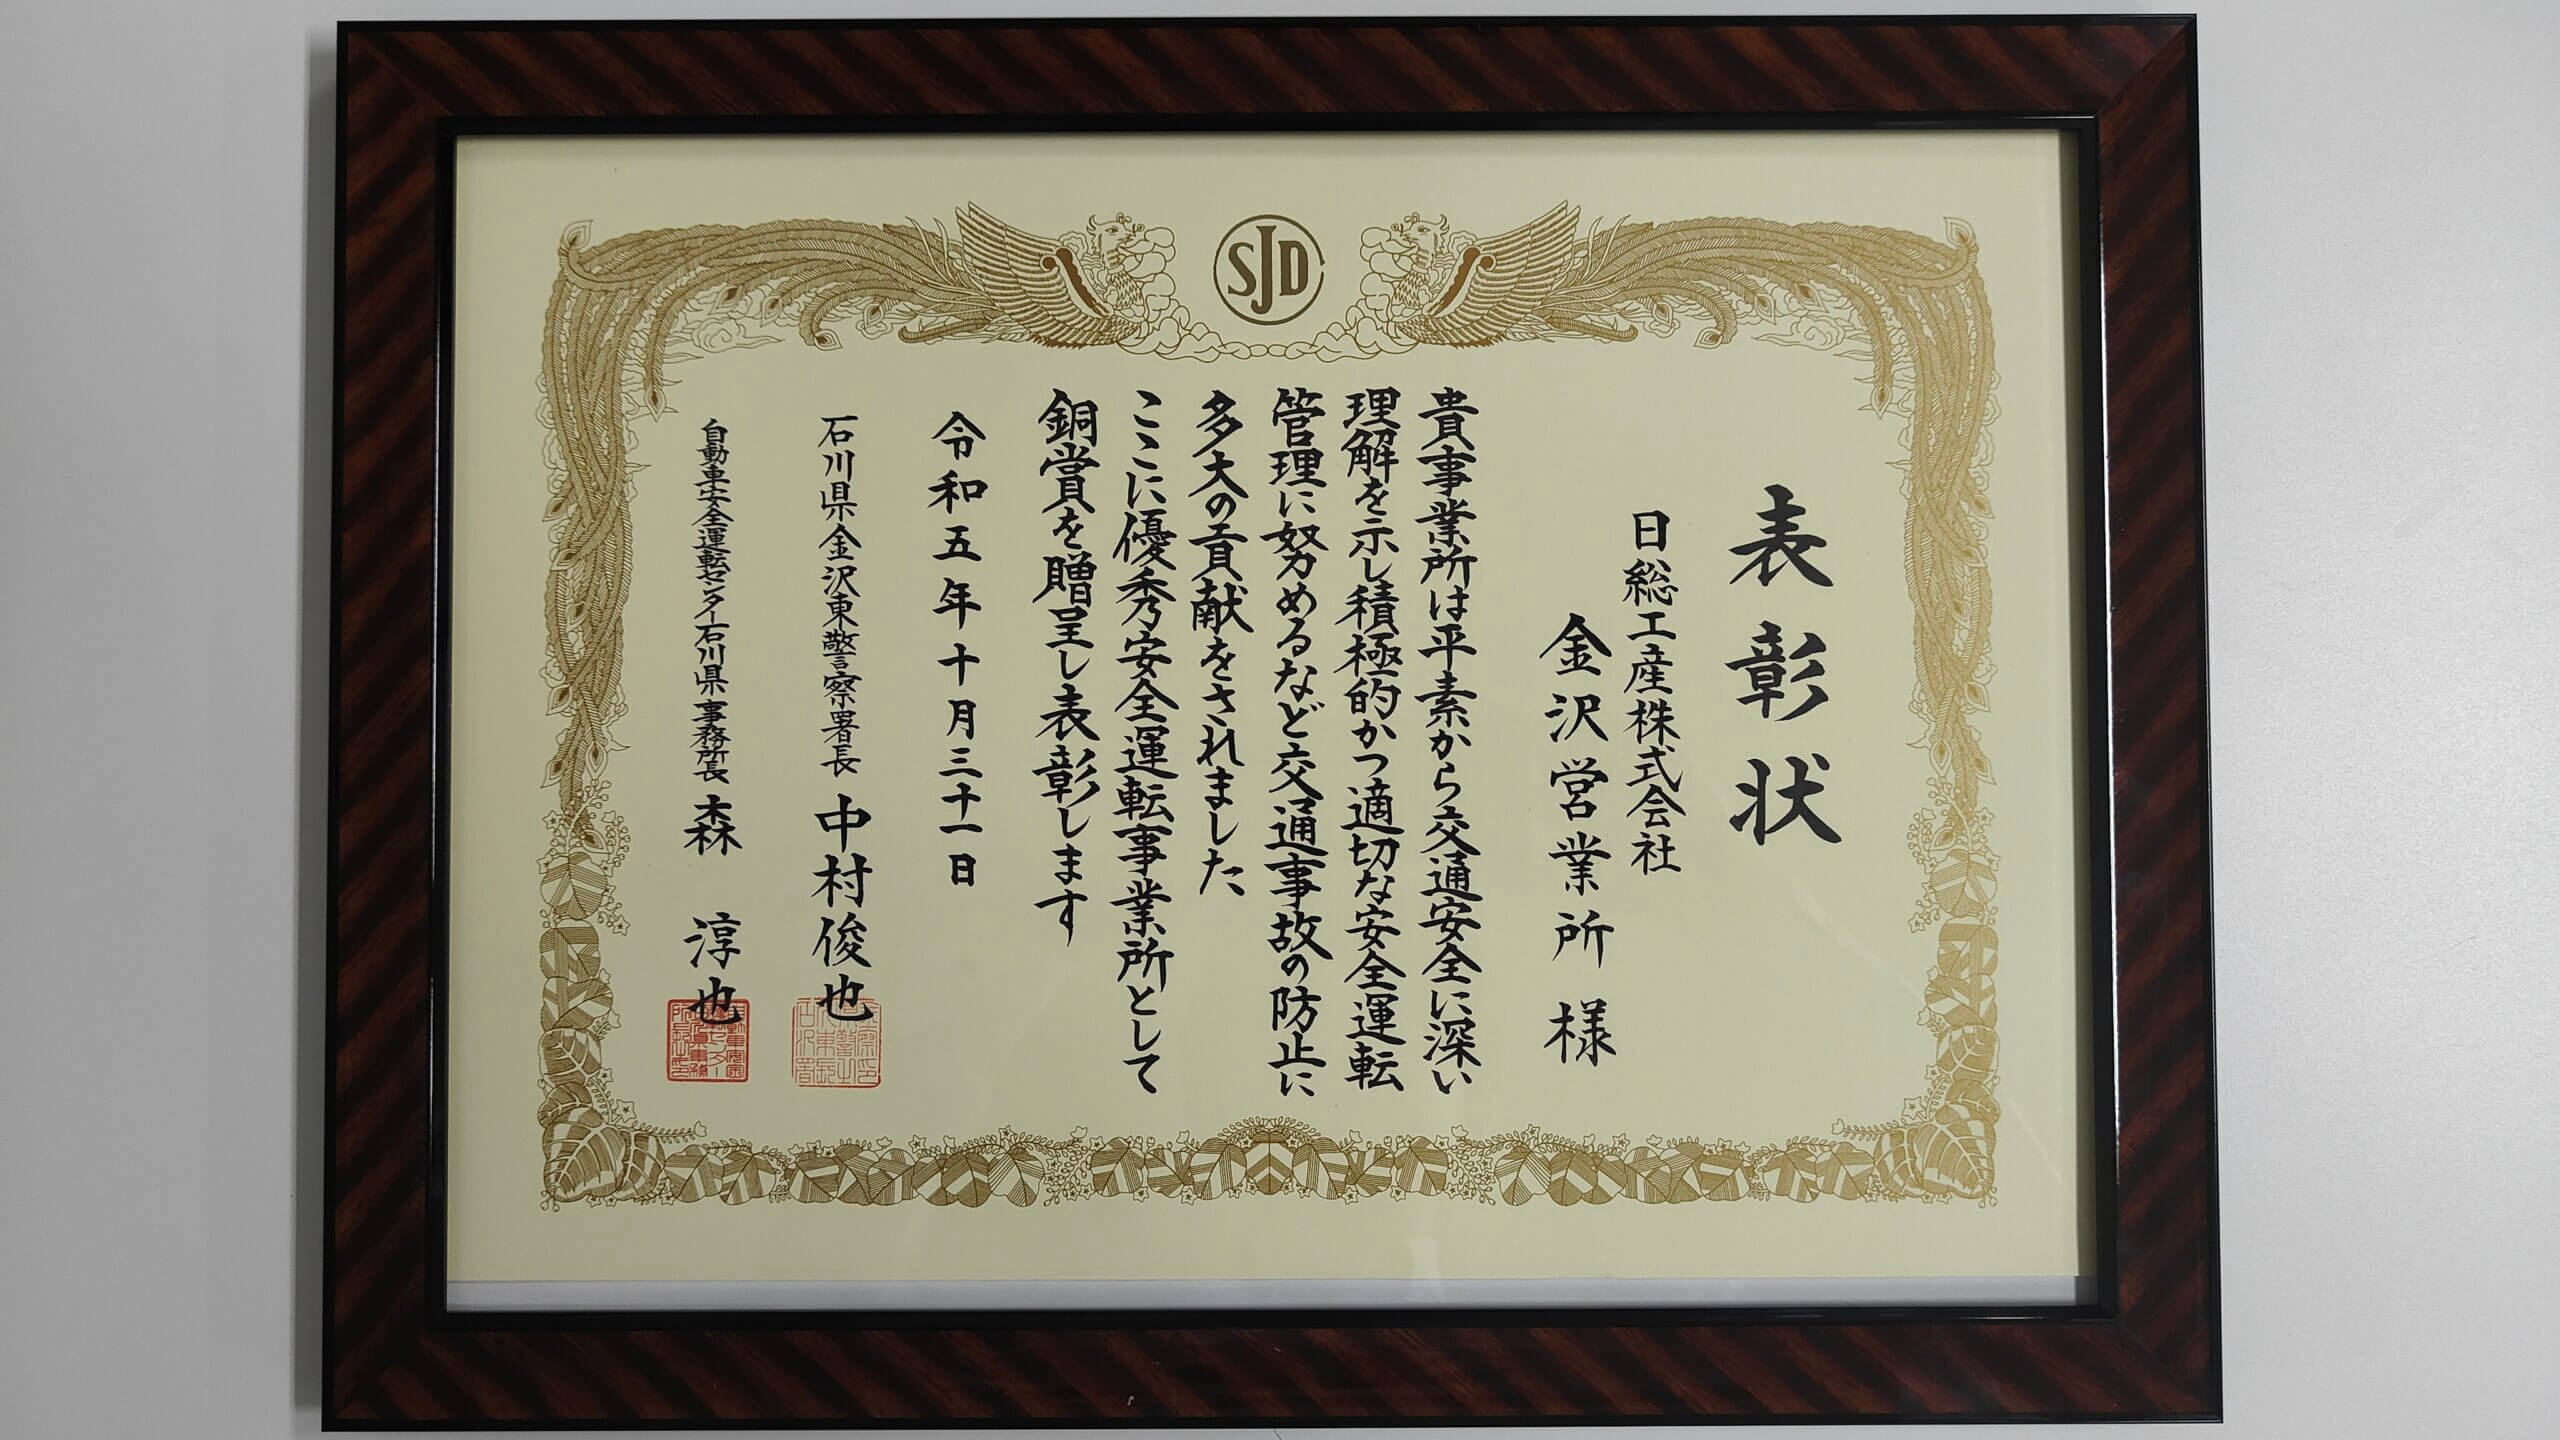 SJD
表彰状
日総工産株式会社
金沢営業所 様
貴事業所は平素から交通安全に深い
理解を示し積極的かつ適切な安全運転
管理に努めるなど交通事故の防止に
多大の貢献をされました
ここに優秀安全運転事業所として
銅賞を贈呈し表彰します
令和五年十月三十一日
石川県金沢東警察署長 中村俊也
自動車安全運転センター石川県事務所長 森 淳也